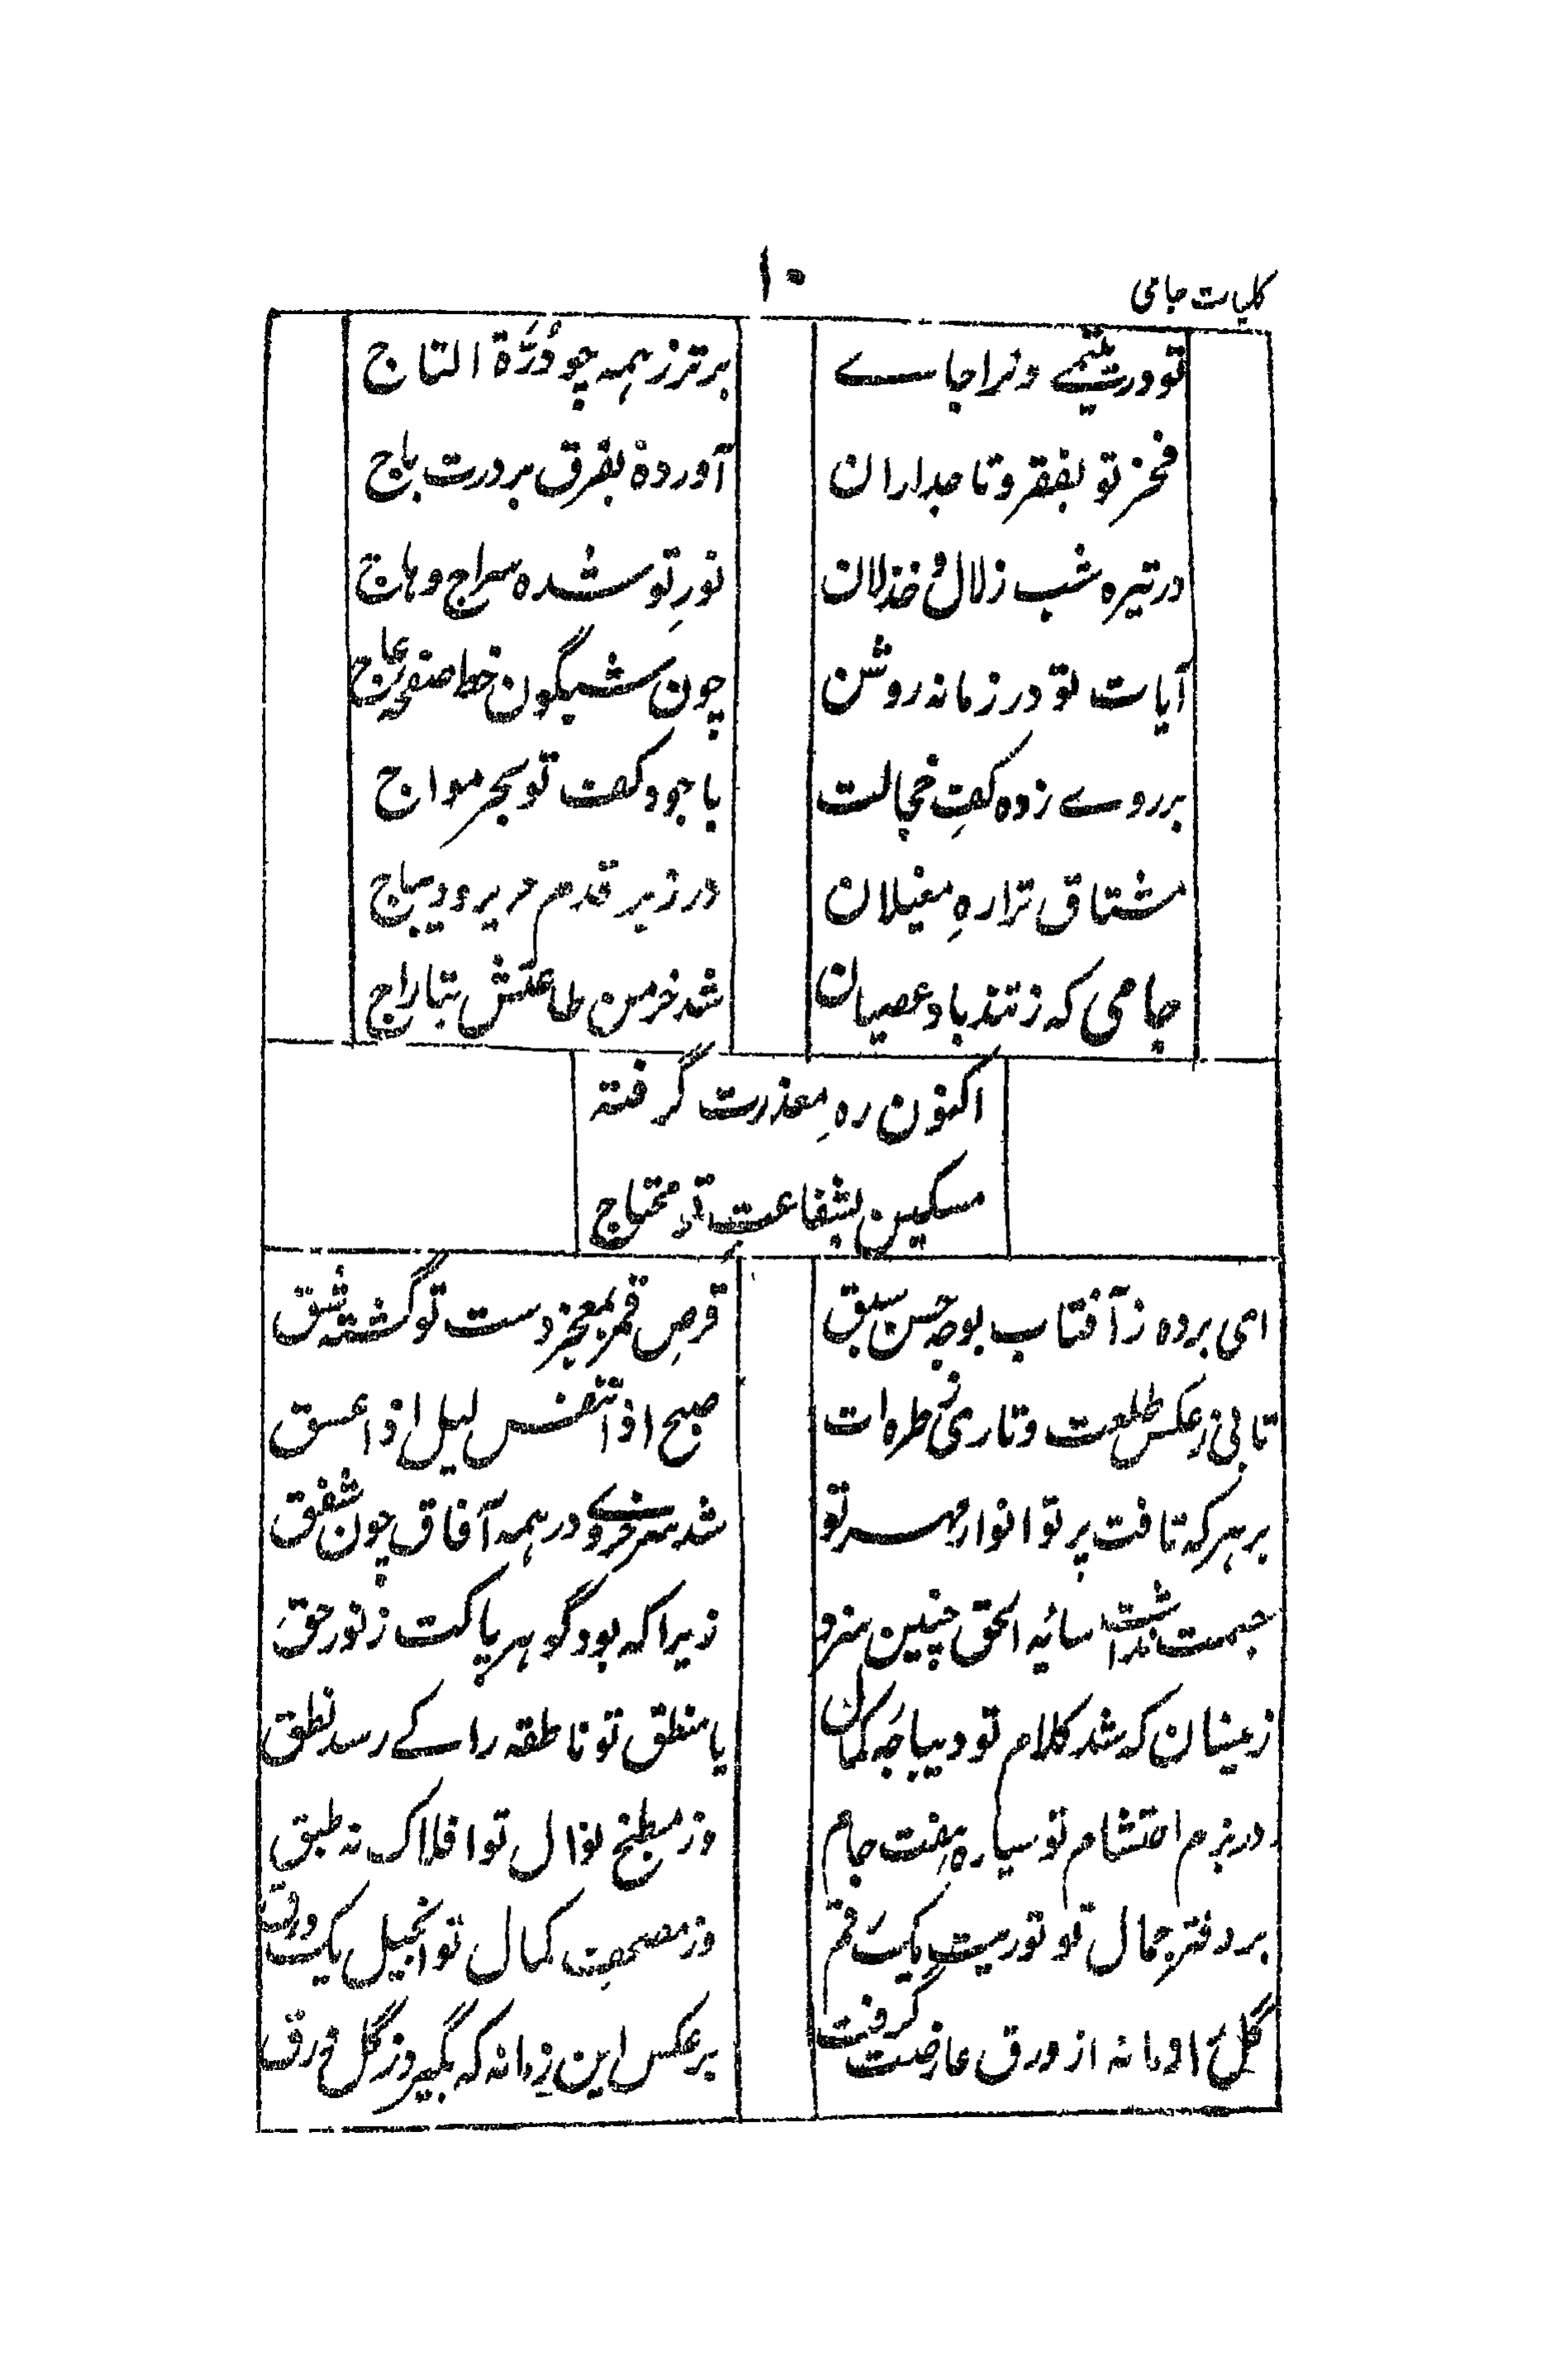 کلیات جامی
۱۰
تو در یتیمے و ترا جاے
برتر ز ہمہ چو دُرَّة التاج
فخر تو بفقر و تاجداران
آوردہ بفرق بر درت باج
در تیرہ شب زلال و خذلان
نورِ تو شدہ سراج وہاج
آیات تو در زمانہ روشن
چون شبگون خط صفحہ عاج
بر روے زدہ کفِ خجالت
با جود کف تو بحر مواج
مشتاق ترا رہِ مغیلان
در زیر قدم حریر و دیباج
جامی کہ ز تند باد عصیان
شد خرمن طاعتش بتاراج
اکنون رہِ معذرت گرفتہ
مسکین بشفاعتِ تو محتاج
ای بردہ ز آفتاب بوجہ حسن سبق
قرصِ قمر بمعجز دست تو گشتہ شق
تابی ز عکس طلعت و تاری ز طرہ ات
صبح اذا تنفس لیل اذا عسق
بر ہر کہ تافت پرتو انوار مہر تو
شد سرخروے در ہمہ آفاق چون شفق
جسمت نداشت سایہ الحق چنین سزد
زیرا کہ بود گوہر پاکت ز نور حق
زینسان کہ شد کلام تو دیباجہ کمال
با منطق تو ناطقہ را کے رسد نطق
در بزم احتشام تو سیارہ ہفت جام
وز مطبخ نوال تو افلاک نہ طبق
بر دفتر جمال تو توریت یک رقم
وز مصحف کمال تو انجیل یک ورق
گل او مانہ از ورق عارضت گرفت
بر عکس این زمانہ کہ بگیرد ز گل عرق